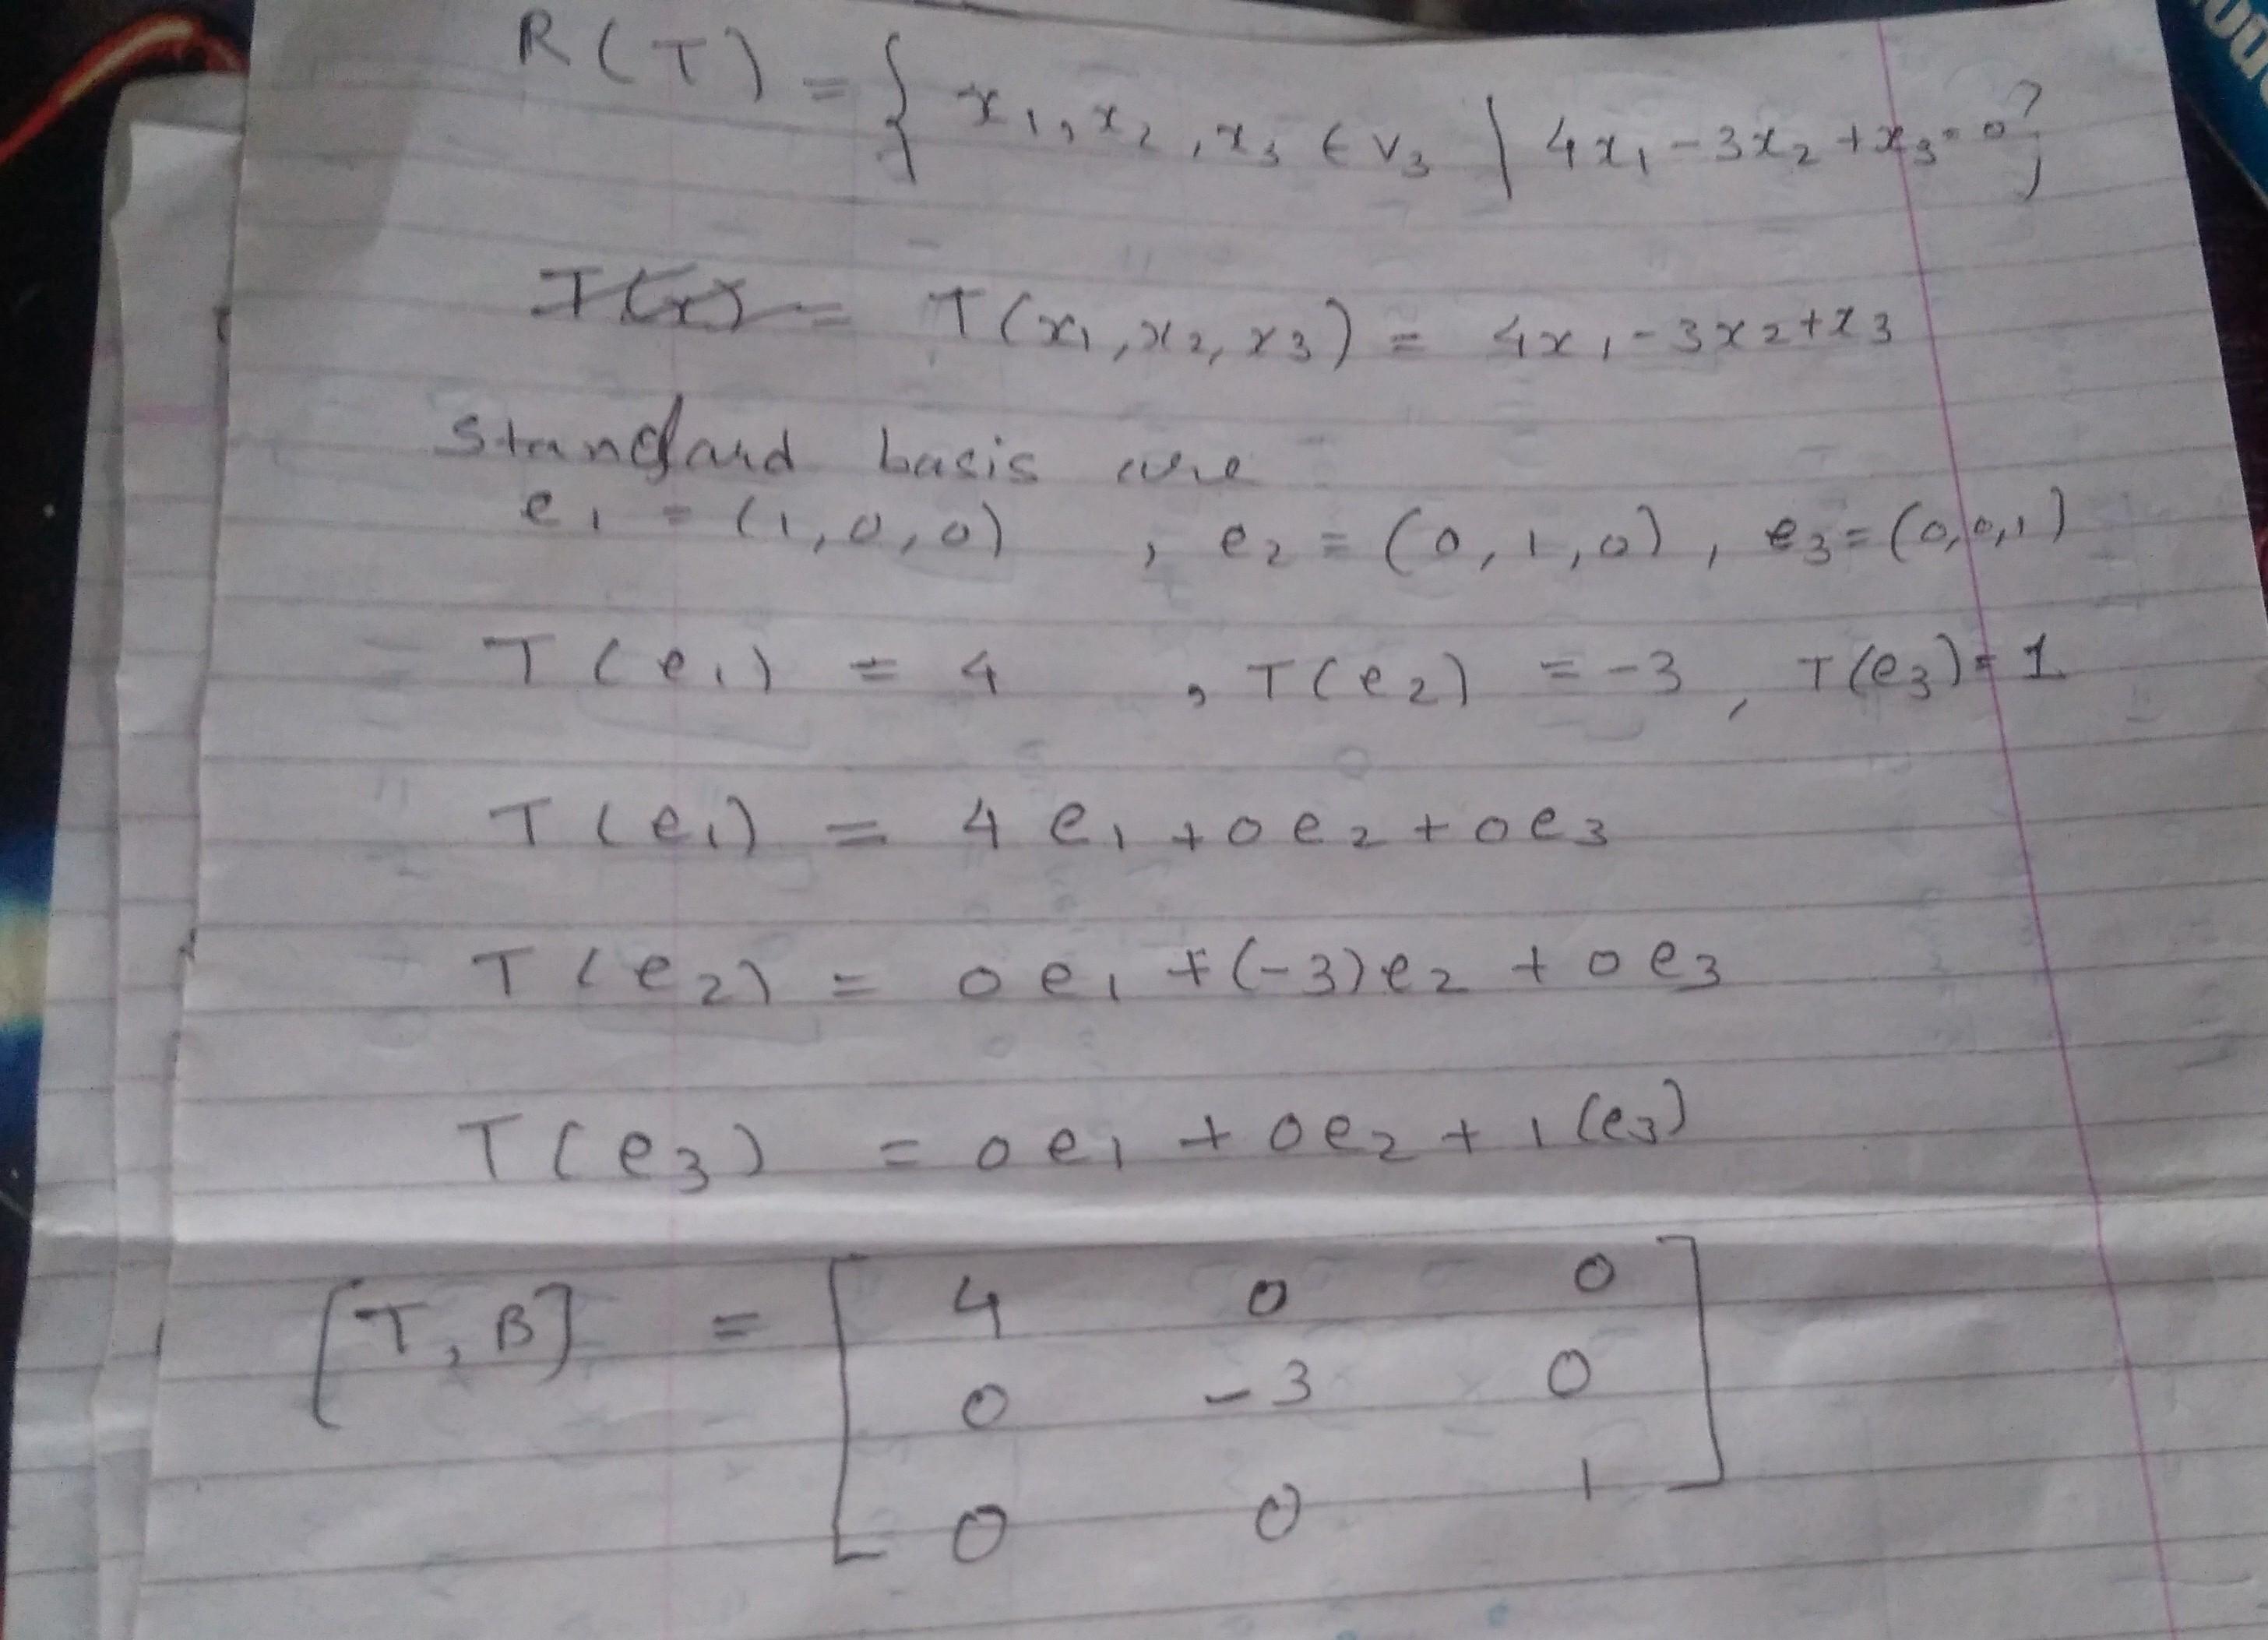 R(T) = { x1, x2, x3 ∈ V3 | 4x1 - 3x2 + x3 = 0 }
T(x) = T(x1, x2, x3) = 4x1 - 3x2 + x3
Standard basis are
e1 = (1,0,0) , e2 = (0,1,0) , e3 = (0,0,1)
T(e1) = 4 , T(e2) = -3 , T(e3) = 1
T(e1) = 4e1 + 0e2 + 0e3
T(e2) = 0e1 + (-3)e2 + 0e3
T(e3) = 0e1 + 0e2 + 1(e3)
[T, B] = [ 4 0 0
0 -3 0
0 0 1 ]